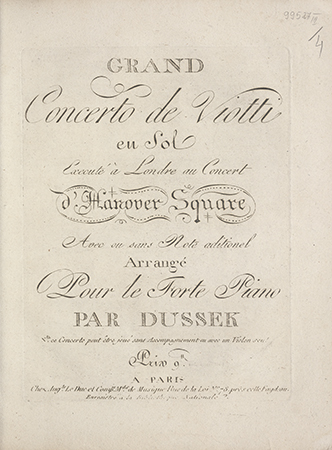 GRAND
Concerto de Viotti
en Sol
Executé à Londre au Concert
d'Hanover Square
Avec ou sans Note aditionel
Arrangé
Pour le Forte Piano
PAR DUSSEK
ce Concerto peut être joué sans accompagnement ou avec un Violon seul
Prix 9
A PARIS
Chez Augte Le Duc et Compe Mds de Musique Rue de la Loi No 78 près celle
Enregistré à la Nationale